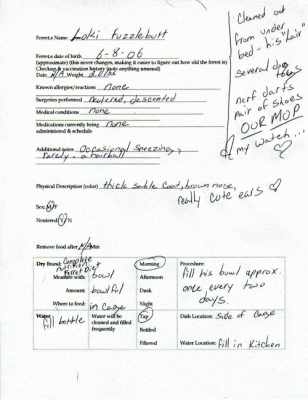 Ferret's Name Loki Fuzzlebutt
Ferret's date of birth 6-8-06
(approximate) (this never changes, making it easier to figure out how old the ferret is)
Checkup & vaccination history (note anything unusual)
Date N/A Weight 2.0 lbs
Known allergies/reactions none
Surgeries performed neutered, descented
Medical conditions none
Medications currently being none
administered & schedule
Additional notes Occasional sneezing,
rarely a hairball
Cleaned out
from under
bed - his "lair"
several dog
toys
nerf darts
pair of shoes
OUR MOP
my watch...
Physical Description (color) thick sable coat, brown nose,
really cute ears
Sex: M/F
Neutered Y/N
Remove food after N/A Min
Dry Brand: Complete
Pellet Diet
Measure with: bowl
Amount: bowlful
Where to feed: in Cage
Morning
Afternoon
Dusk
Night
Procedure:
fill his bowl approx.
once every two
days.
Water
fill bottle
Water will be
cleaned and filled
frequently
Tap
Bottled
Filtered
Dish Location: Side of Cage
Water Location: fill in Kitchen